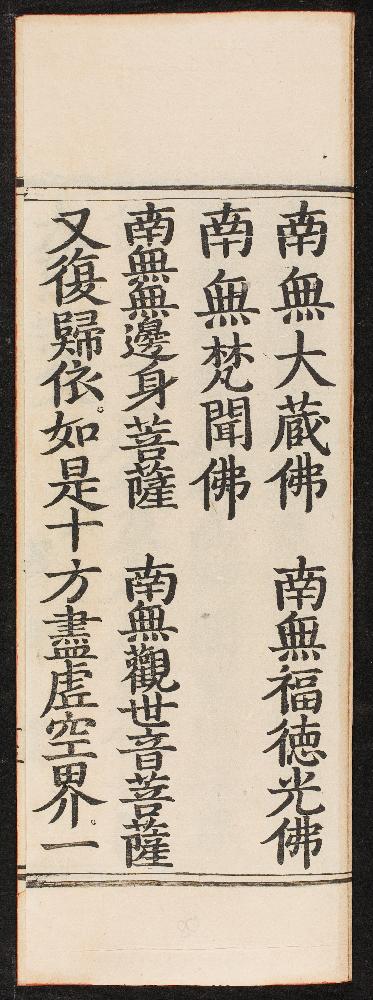 南無大蔵佛　南無福德光佛
南無梵聞佛
南無無邊身菩薩　南無觀世音菩薩
又復歸依。如是十方盡虛空界。一